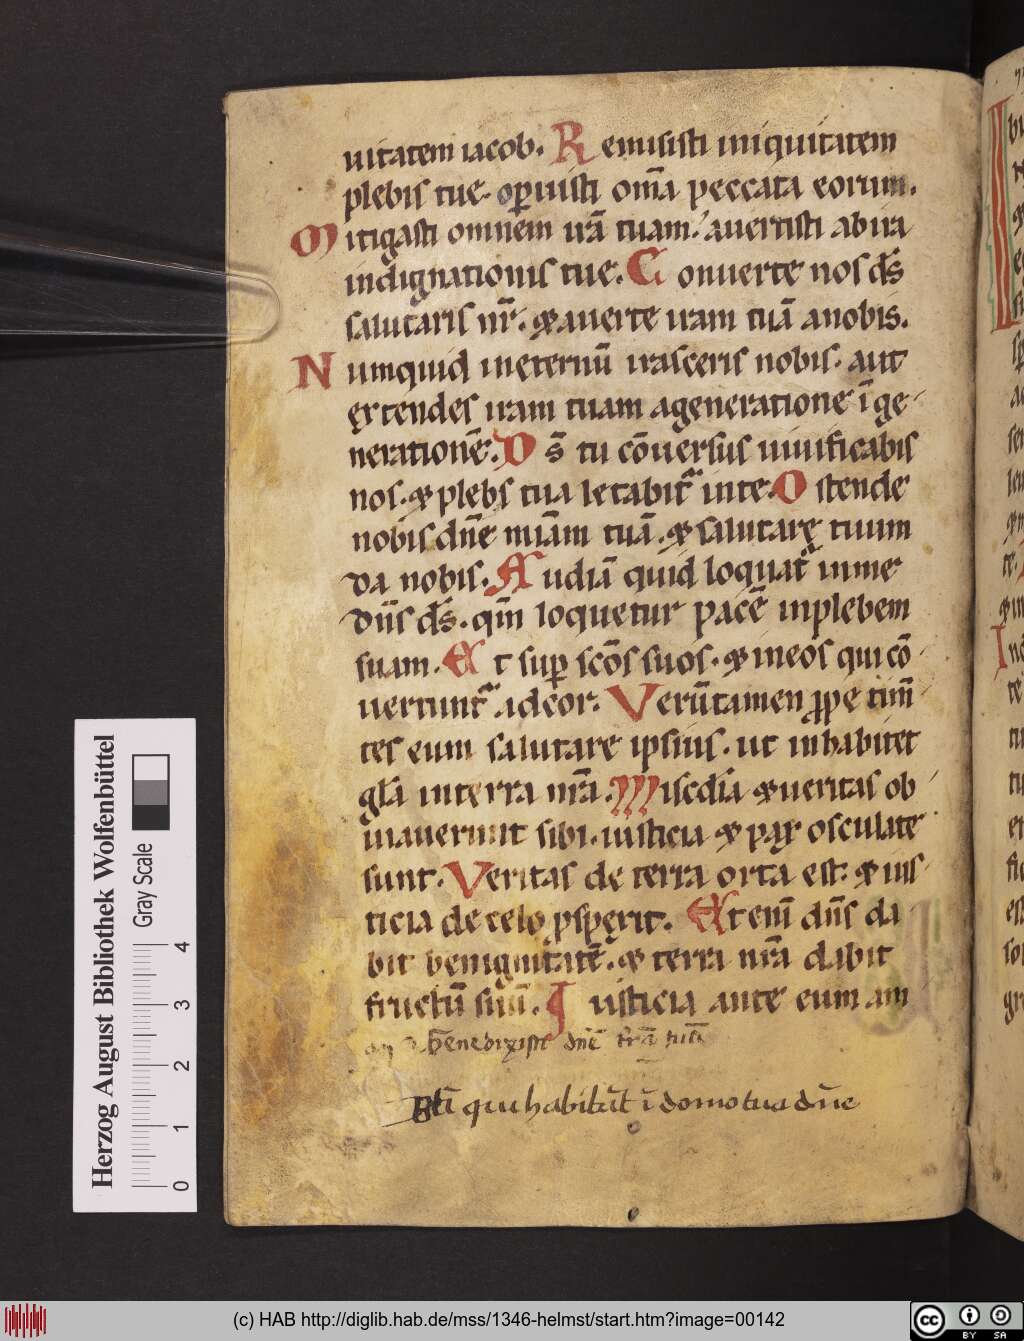 uitatem iacob. Remisisti iniquitatem
plebis tue. op̲uisti om̄a peccata eorum.
Mitigasti omnem irā tuam. auertisti ab ira
indignationis tue. Conuerte nos ds̄
salutaris nr̄. & auerte iram tuā anobis.
Numquid ineternū irasceris nobis. aut
extendes iram tuam ageneratione ī ge
nerationē. Ds̄ tu cōuersus uiuificabis
nos. & plebs tua letabit̄ inte. Ostende
nobis dn̄e miām tuā. & salutarę tuum
da nobis. Audiā quid loquat̄ inme
dn̄s ds̄. qm̄ loquetur pacē inplebem
suam. Et sup̲ scōs suos. & ineos qui cō
uertunt̄ adcor. Verūtamen p̲pe tim̄
tes eum salutare ipsius. ut inhabitet
glā interra nr̄a. Miscdia & ueritas ob
uiauerunt sibi. iusticia & pax osculate
sunt. Veritas de terra orta est. & ius
ticia de celo p̲spexit. Etenī dn̄s da
bit benignitatē. & terra nr̄a dabit
fructū suū. Iusticia ante eum am
Benedixisti dn̄e t̄rā tuā
Bt̄i qui habitāt ī domo tua dn̄e
Herzog August Bibliothek Wolfenbüttel
Gray Scale
0 1 2 3 4
(c) HAB http://diglib.hab.de/mss/1346-helmst/start.htm?image=00142
cc BY SA